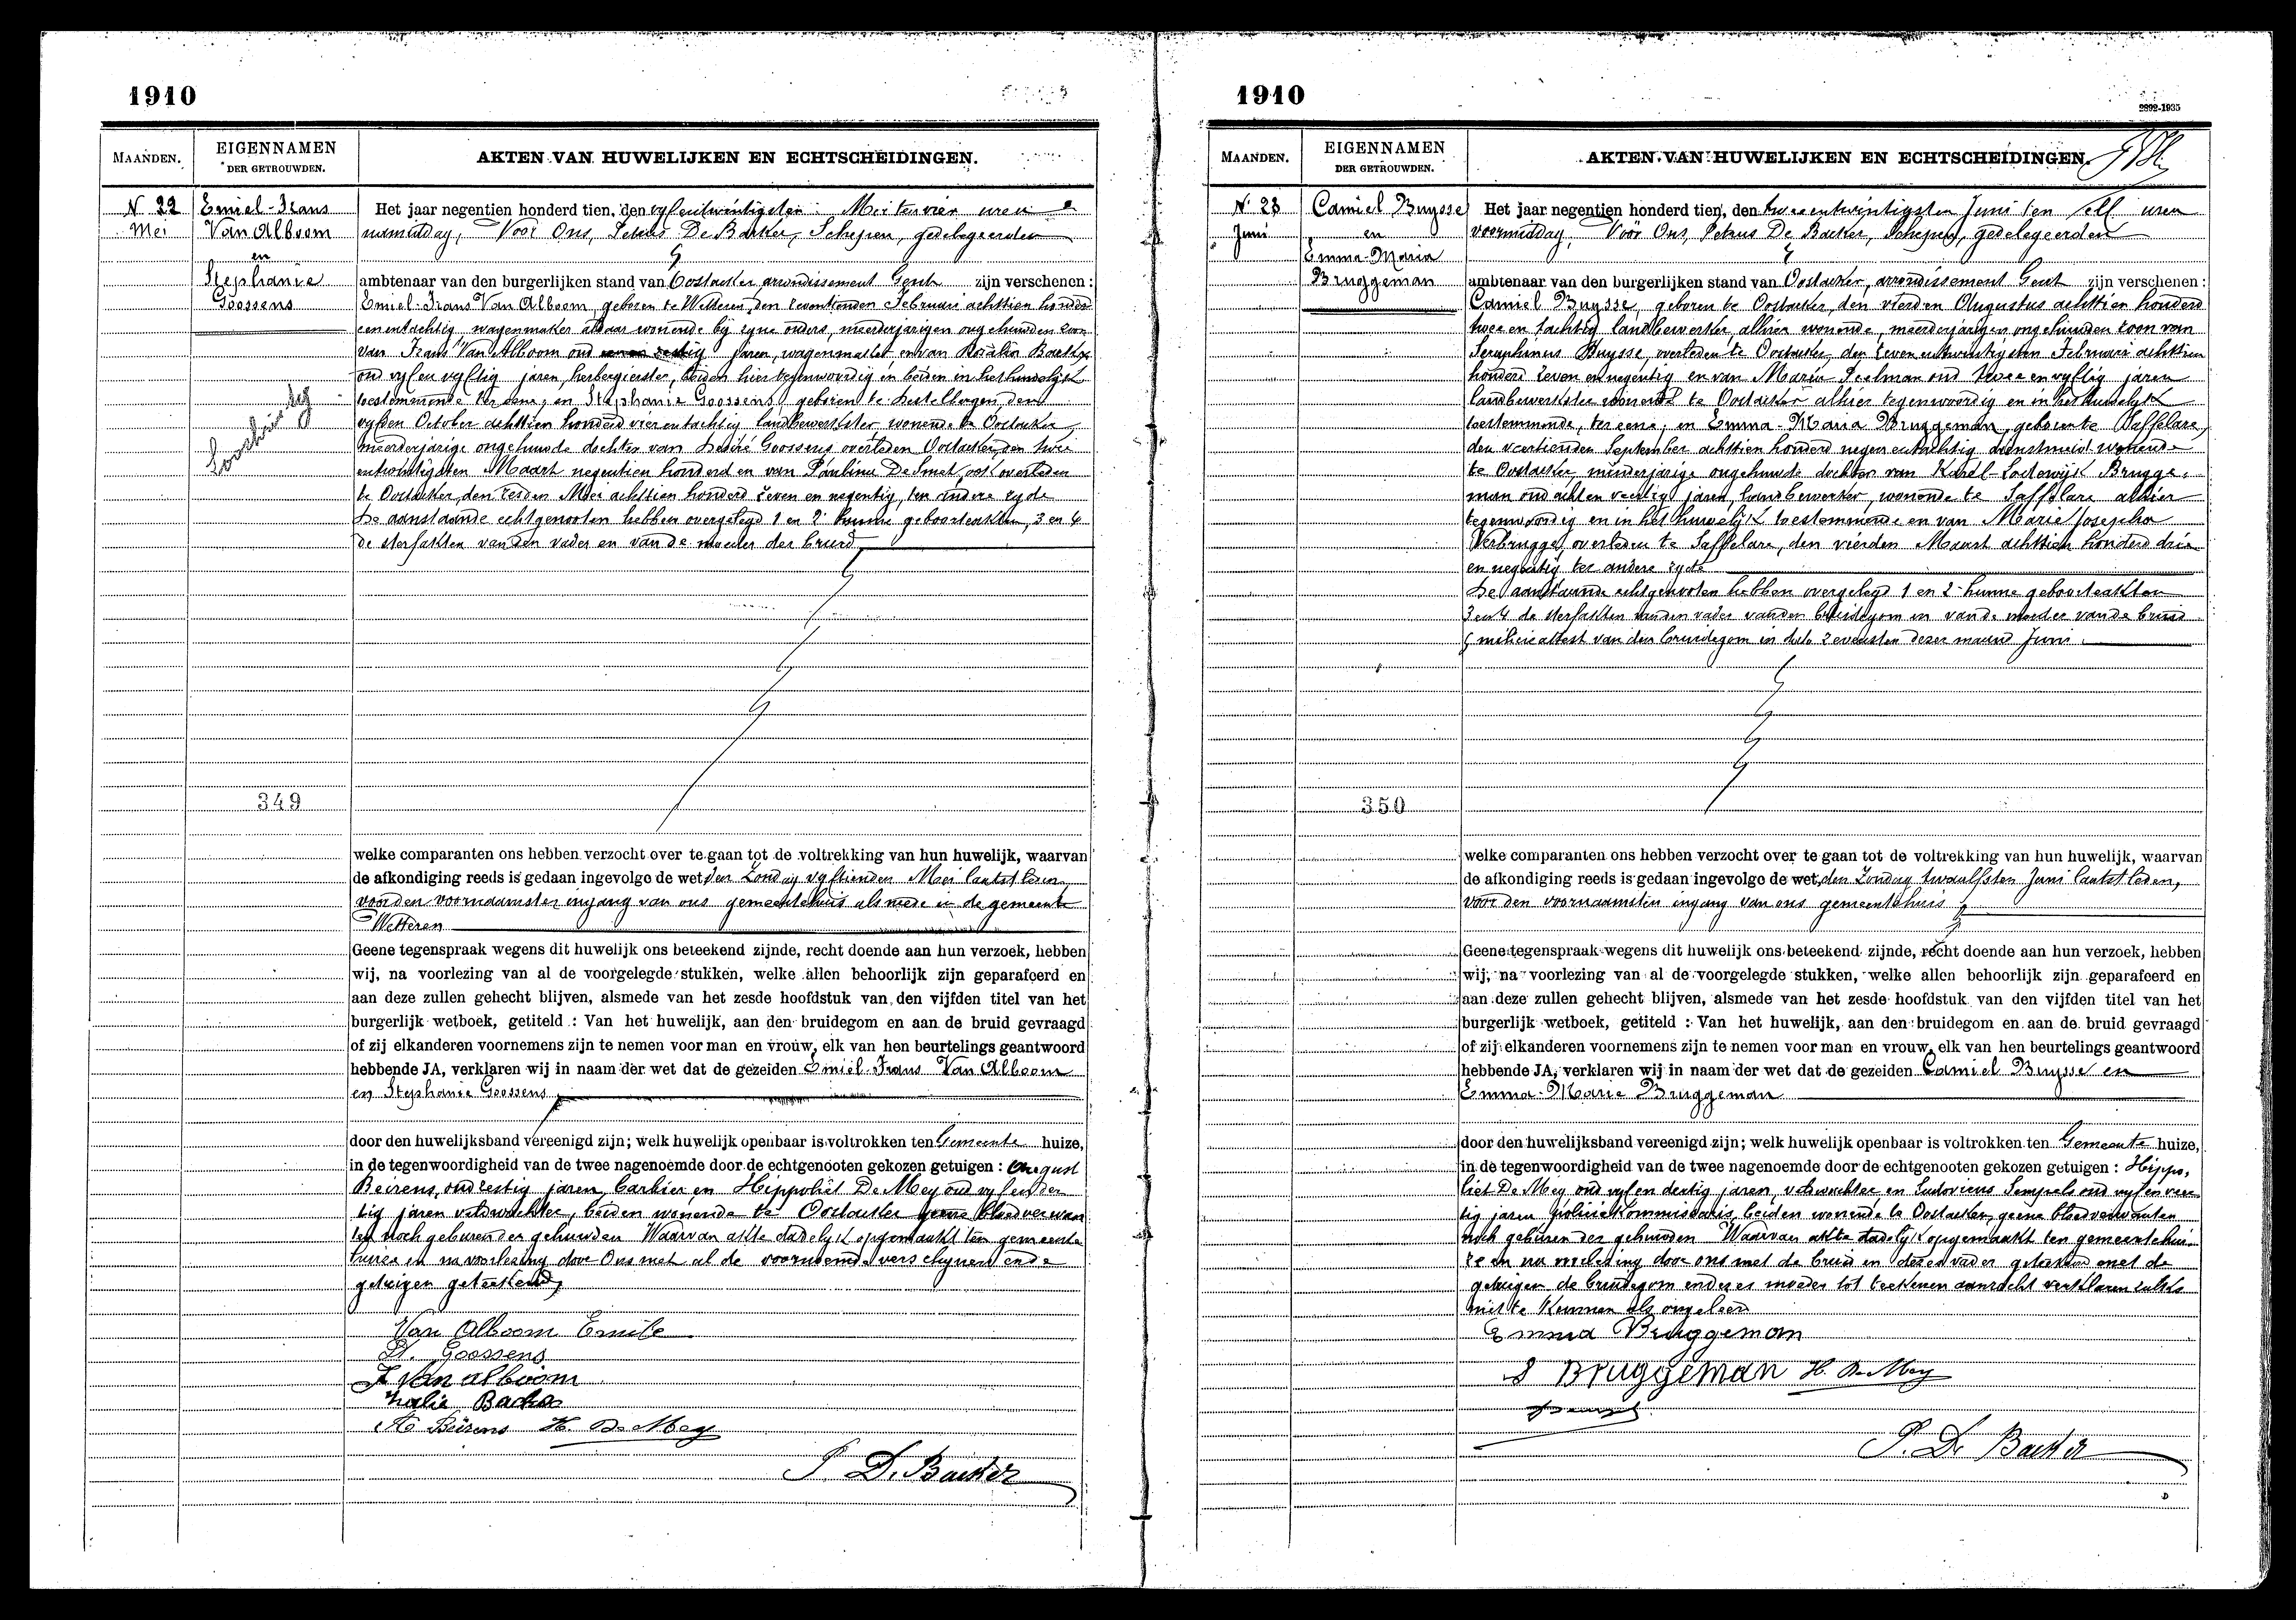 1910
MAANDEN.
EIGENNAMEN
DER GETROUWDEN.
AKTEN VAN HUWELIJKEN EN ECHTSCHEIDINGEN.
N 22
Mei
Emiel-Frans
Van Alboom
en
Stephanie
Goossens
349
Het jaar negentien honderd tien, den vyfentwintigsten Mei ten vier uren
namiddag, Voor Ons, Petrus De Backer, Schepen, gedelegeerden
ambtenaar van den burgerlijken stand van Oostacker arrondissement Gent zijn verschenen :
Emiel-Frans Van Alboom, geboren te Wetteren, den zeventienden Februari achttien honderd
eenentachtig wagenmaker aldaar wonende bij zyne ouders, meerderjarigen ongehuwden zoon
van Frans Van Alboom oud zestig jaren, wagenmaker en van
oud vyfenvyftig jaren, herbergierster, beiden hier tegenwoordig en beiden in het huwelijk
toestemmende ter eene, en Stephanie Goossens geboren te Destelbergen, den
vyfden October achttien honderd vierentachtig landbewerkster wonende te Oostacker
meerderjarige ongehuwde dochter van Desiré Goossens overleden Oostacker den twee
entwintigsten Maart negentien honderd en van Pauline De Smet, ook overleden
te Oostacker, den zesden Mei achttien honderd zeven en negentig, ten andere zyde
De aanstaande echtgenooten hebben overgelegd 1 en 2 hunne geboorteakten, 3 en 4
de sterfakten van den vader en van de moeder der bruid
welke comparanten ons hebben verzocht over te gaan tot de voltrekking van hun huwelijk, waarvan
de afkondiging reeds is gedaan ingevolge de wet den Zondag vyftienden Mei laatstleden,
voor den voornaamsten ingang van ons gemeentehuis alsmede in de gemeente
Wetteren
Geene tegenspraak wegens dit huwelijk ons beteekend zijnde, recht doende aan hun verzoek, hebben
wij, na voorlezing van al de voorgelegde stukken, welke allen behoorlijk zijn geparafeerd en
aan deze zullen gehecht blijven, alsmede van het zesde hoofdstuk van den vijfden titel van het
burgerlijk wetboek, getiteld : Van het huwelijk, aan den bruidegom en aan de bruid gevraagd
of zij elkanderen voornemens zijn te nemen voor man en vrouw, elk van hen beurtelings geantwoord
hebbende JA, verklaren wij in naam der wet dat de gezeiden Emiel-Frans Van Alboom
en Stephanie Goossens
door den huwelijksband vereenigd zijn; welk huwelijk openbaar is voltrokken ten Gemeente huize,
in de tegenwoordigheid van de twee nagenoemde door de echtgenooten gekozen getuigen : August
Beirens, oud zestig jaren, barbier en Hippoliet De Mey oud vyfender
tig jaren veldwachter, beiden wonende te Oostacker geene bloedverwan
ten noch geburen der gehuwden Waarvan akte dadelyk opgemaakt ten gemeente
huize en na voorlezing door Ons met al de voornoemde verschynenende
getuigen geteekend,
Van Alboom Emile
Goossens
F Van alboom
A Beirens H. De Mey
P. De Backer
1910
2892-1935
MAANDEN.
EIGENNAMEN
DER GETROUWDEN.
AKTEN VAN HUWELIJKEN EN ECHTSCHEIDINGEN.
N 23
Juni
Camiel Buysse
en
Emma-Maria
Bruggeman
350
Het jaar negentien honderd tien, den tweeentwintigsten Juni ten elf uren
voormiddag, Voor Ons, Petrus De Backer, Schepen, gedelegeerden
ambtenaar van den burgerlijken stand van Oostacker, arrondissement Gent zijn verschenen :
Camiel Buysse, geboren te Oostacker, den vierden Augustus achttien honderd
twee en tachtig landbewerker alhier wonende, meerderjarigen ongehuwden zoon van
Seraphinus Buysse, overleden te Oostacker, den zevenentwintigsten Februari achttien
honderd zeven en negentig en van Marie Seelman oud twee en vyftig jaren
landbewerkster wonende te Oostacker alhier tegenwoordig en in het huwelyk
toestemmende, ter eene, en Emma-Maria Bruggeman, geboren te Saffelare,
den veertienden September achttien honderd negen entachtig dienstmeid wonende
te Oostacker, minderjarige ongehuwde dochter van Karel-Lodewijk Brugge-
man oud achten veertig jaren, landbewerker, wonende te Saffelare alhier
tegenwoordig en in het huwelijk toestemmende en van Marie Josepha
Verbrugge, overleden te Saffelare, den vierden Maart achttien honderd drie
en negentig ter andere zyde
De aanstaande echtgenooten hebben overgelegd 1 en 2 hunne geboorteakten
3 en 4 de sterfakten van den vader van den bruidegom en van de moeder van de bruid
5 milicieattest van den bruidegom in date zevensten dezer maand Juni.
welke comparanten ons hebben verzocht over te gaan tot de voltrekking van hun huwelijk, waarvan
de afkondiging reeds is gedaan ingevolge de wet, den Zondag twaalfsten Juni laatstleden,
voor den voornaamsten ingang van ons gemeentehuis
Geene tegenspraak wegens dit huwelijk ons beteekend zijnde, recht doende aan hun verzoek, hebben
wij, na voorlezing van al de voorgelegde stukken, welke allen behoorlijk zijn geparafeerd en
aan deze zullen gehecht blijven, alsmede van het zesde hoofdstuk van den vijfden titel van het
burgerlijk wetboek, getiteld : Van het huwelijk, aan den bruidegom en aan de bruid gevraagd
of zij elkanderen voornemens zijn te nemen voor man en vrouw, elk van hen beurtelings geantwoord
hebbende JA, verklaren wij in naam der wet dat de gezeiden Camiel Buysse en
Emma-Marie Bruggeman
door den huwelijksband vereenigd zijn; welk huwelijk openbaar is voltrokken ten Gemeente huize,
in de tegenwoordigheid van de twee nagenoemde door de echtgenooten gekozen getuigen : Hippo-
liet De Mey oud vyfen dertig jaren, veldwachter en Ludovicus Sempels oud vyfenveer
tig jaren policiekommissaris, beiden wonende te Oostacker, geene bloedverwanten
noch geburen der gehuwden Waarvan akte dadelyk opgemaakt ten gemeentehui-
ze en na voorlezing door ons met de bruid en dezen vader geteekend met de
getuigen de bruidegom en dezes moeder tot teekenen aanzocht verklaren zulks
niet te kunnen als ongeleerd
Emma Bruggeman
Bruggeman H. De Mey
P. De Backer